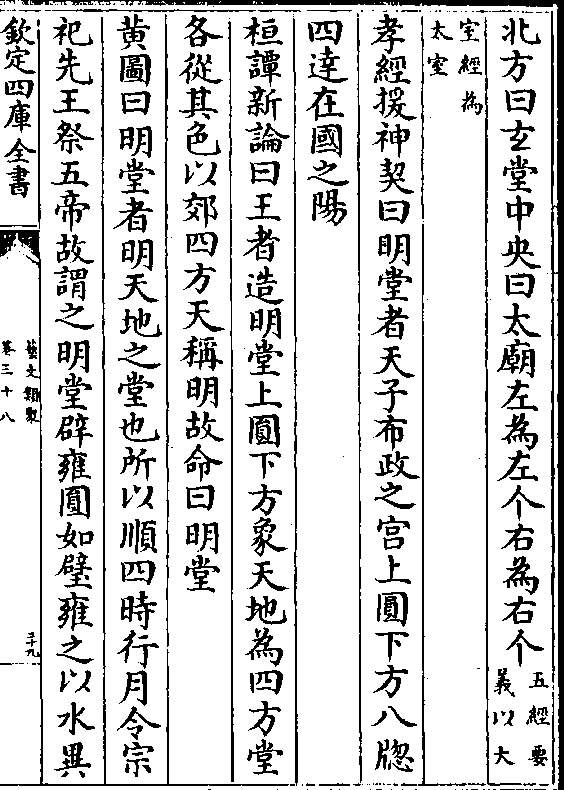 北方曰玄堂中央曰太廟左為左个右為右个五經要義以大
室經為太室
孝經援神契曰明堂者天子布政之宫上圓下方八牕
四達在國之陽
桓譚新論曰王者造明堂上圓下方象天地為四方堂
各從其色以郊四方天稱明故命曰明堂
黄圖曰明堂者明天地之堂也所以順四時行月令宗
祀先王祭五帝故謂之明堂辟雍圓如璧雍之以水異
欽定四庫全書
藝文類聚
卷三十八
三十九